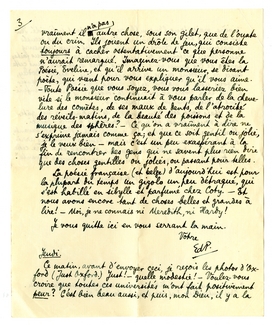 3.
(n'a pas)
vraiment il autre chose, sous son gilet, que de l'ouate
ou du crin. Ils jouent un drôle de jeu, qui consiste
toujours à cacher ostentatoirement ce que personne
n'aurait remarqué. Imaginez-vous que vous êtes la
Poésie, Eveline, et qu'il arrive un monsieur, se disant
poète, qui vient pour vous expliquer qu'il vous aime —
Toute Poésie que vous soyez, vous vous lasseriez bien
vite si le monsieur continuait à vous parler de la cheve-
lure des comètes, de ses maux de dents, de l'atrocité
des réveils-matins, de la beauté des poissons et de la
musique des sphères? — Ce qu'on a vraiment à dire ne
s'exprime jamais comme ça, et que ce soit gentil ou jolie,
je le veux bien — mais c'est un peu exaspérant à la
fin de rencontrer des gens qui ne savent plus rien dire
que des choses gentilles ou jolies, ou passant pour telles.
La poésie française (et belge) d'aujourd'hui est pour
la plupart du temps un gigolo un peu détraqué, qui
s'est habillé en sibylle et parfumé chez Coty. — Et
nous avons encore tant de choses belles et grandes à
lire! — Moi, je ne connais ni Meredith, ni Hardy!
Je vous quitte ici en vous serrant la main.
Votre
EdP.
Jeudi.
Ce matin, avant d'envoyer ceci, je reçois les photos d'Ox-
ford (Just Oxford). Just! — quelle modestie! — Voulez-vous
croire que toutes ces universités m'ont fait positivement
peur? C'est bien beau aussi, et puis, mon bien, il y a la